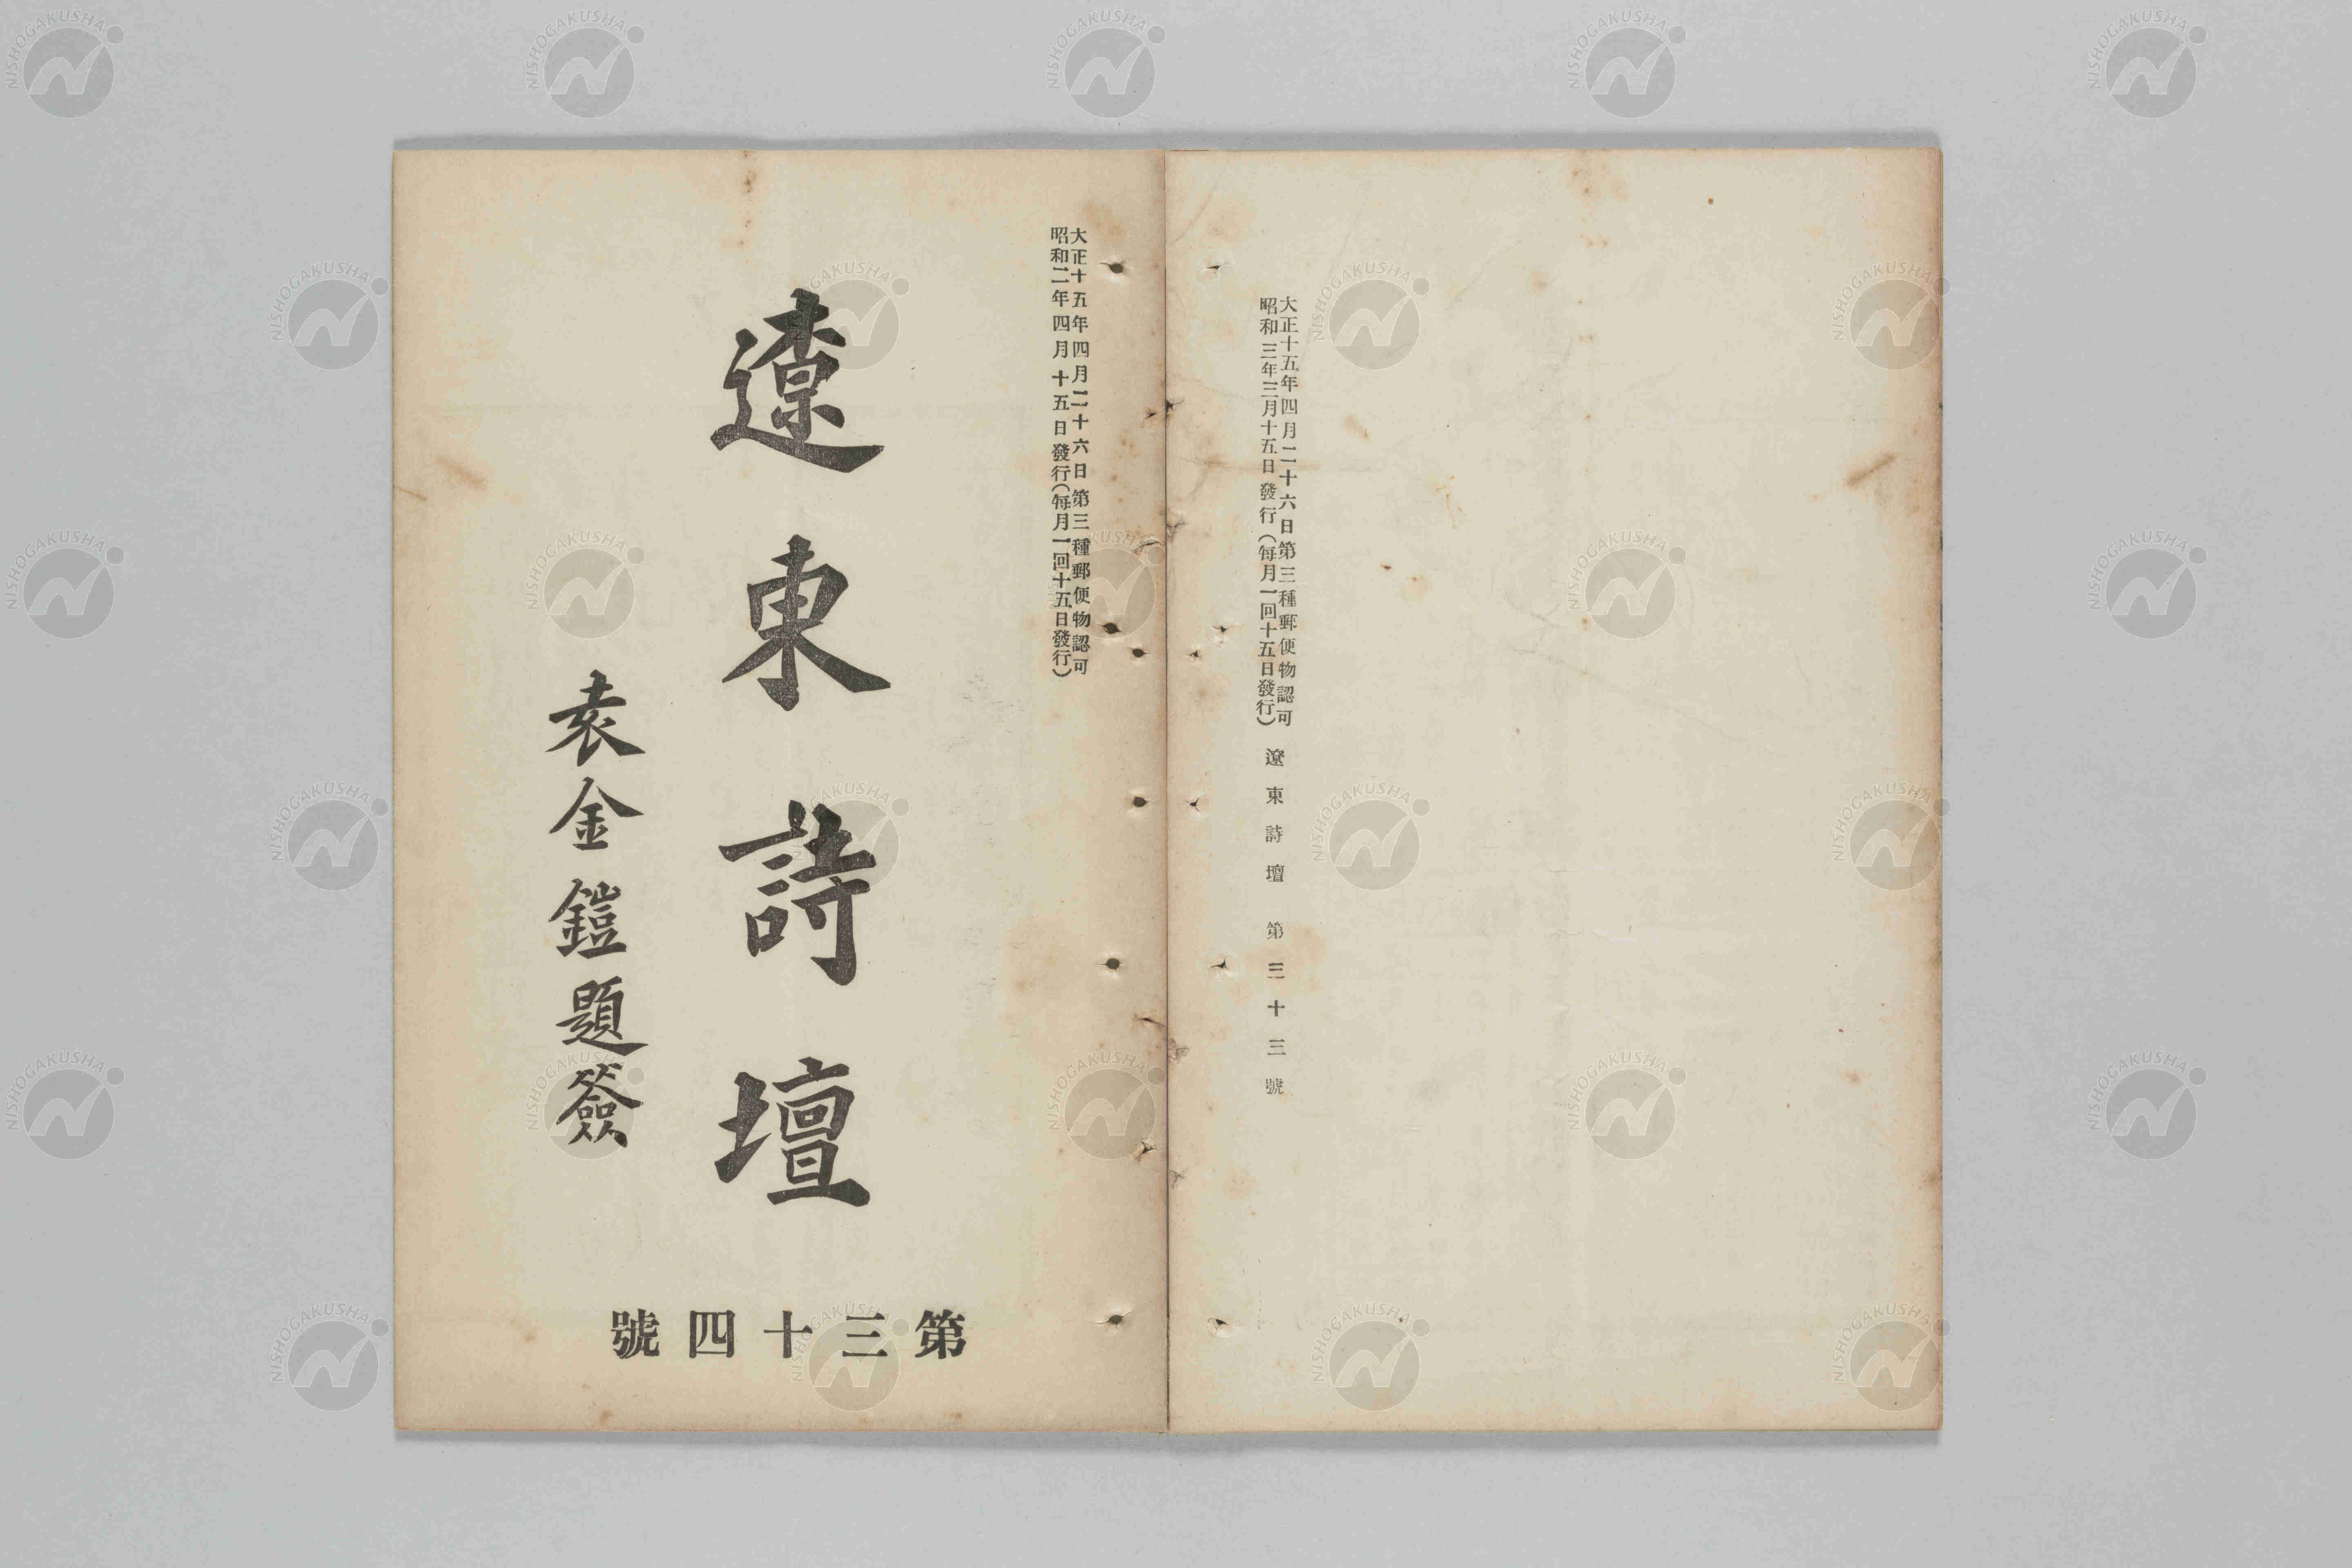 大正十五年四月二十六日第三種郵便物認可
昭和三年三月十五日發行(每月一回十五日發行)
遼東詩壇 第三十三號
大正十五年四月二十六日第三種郵便物認可
昭和二年四月十五日發行(每月一回十五日發行)
遼東詩壇
袁金鎧題簽
第三十四號
NISHOGAKUSHA